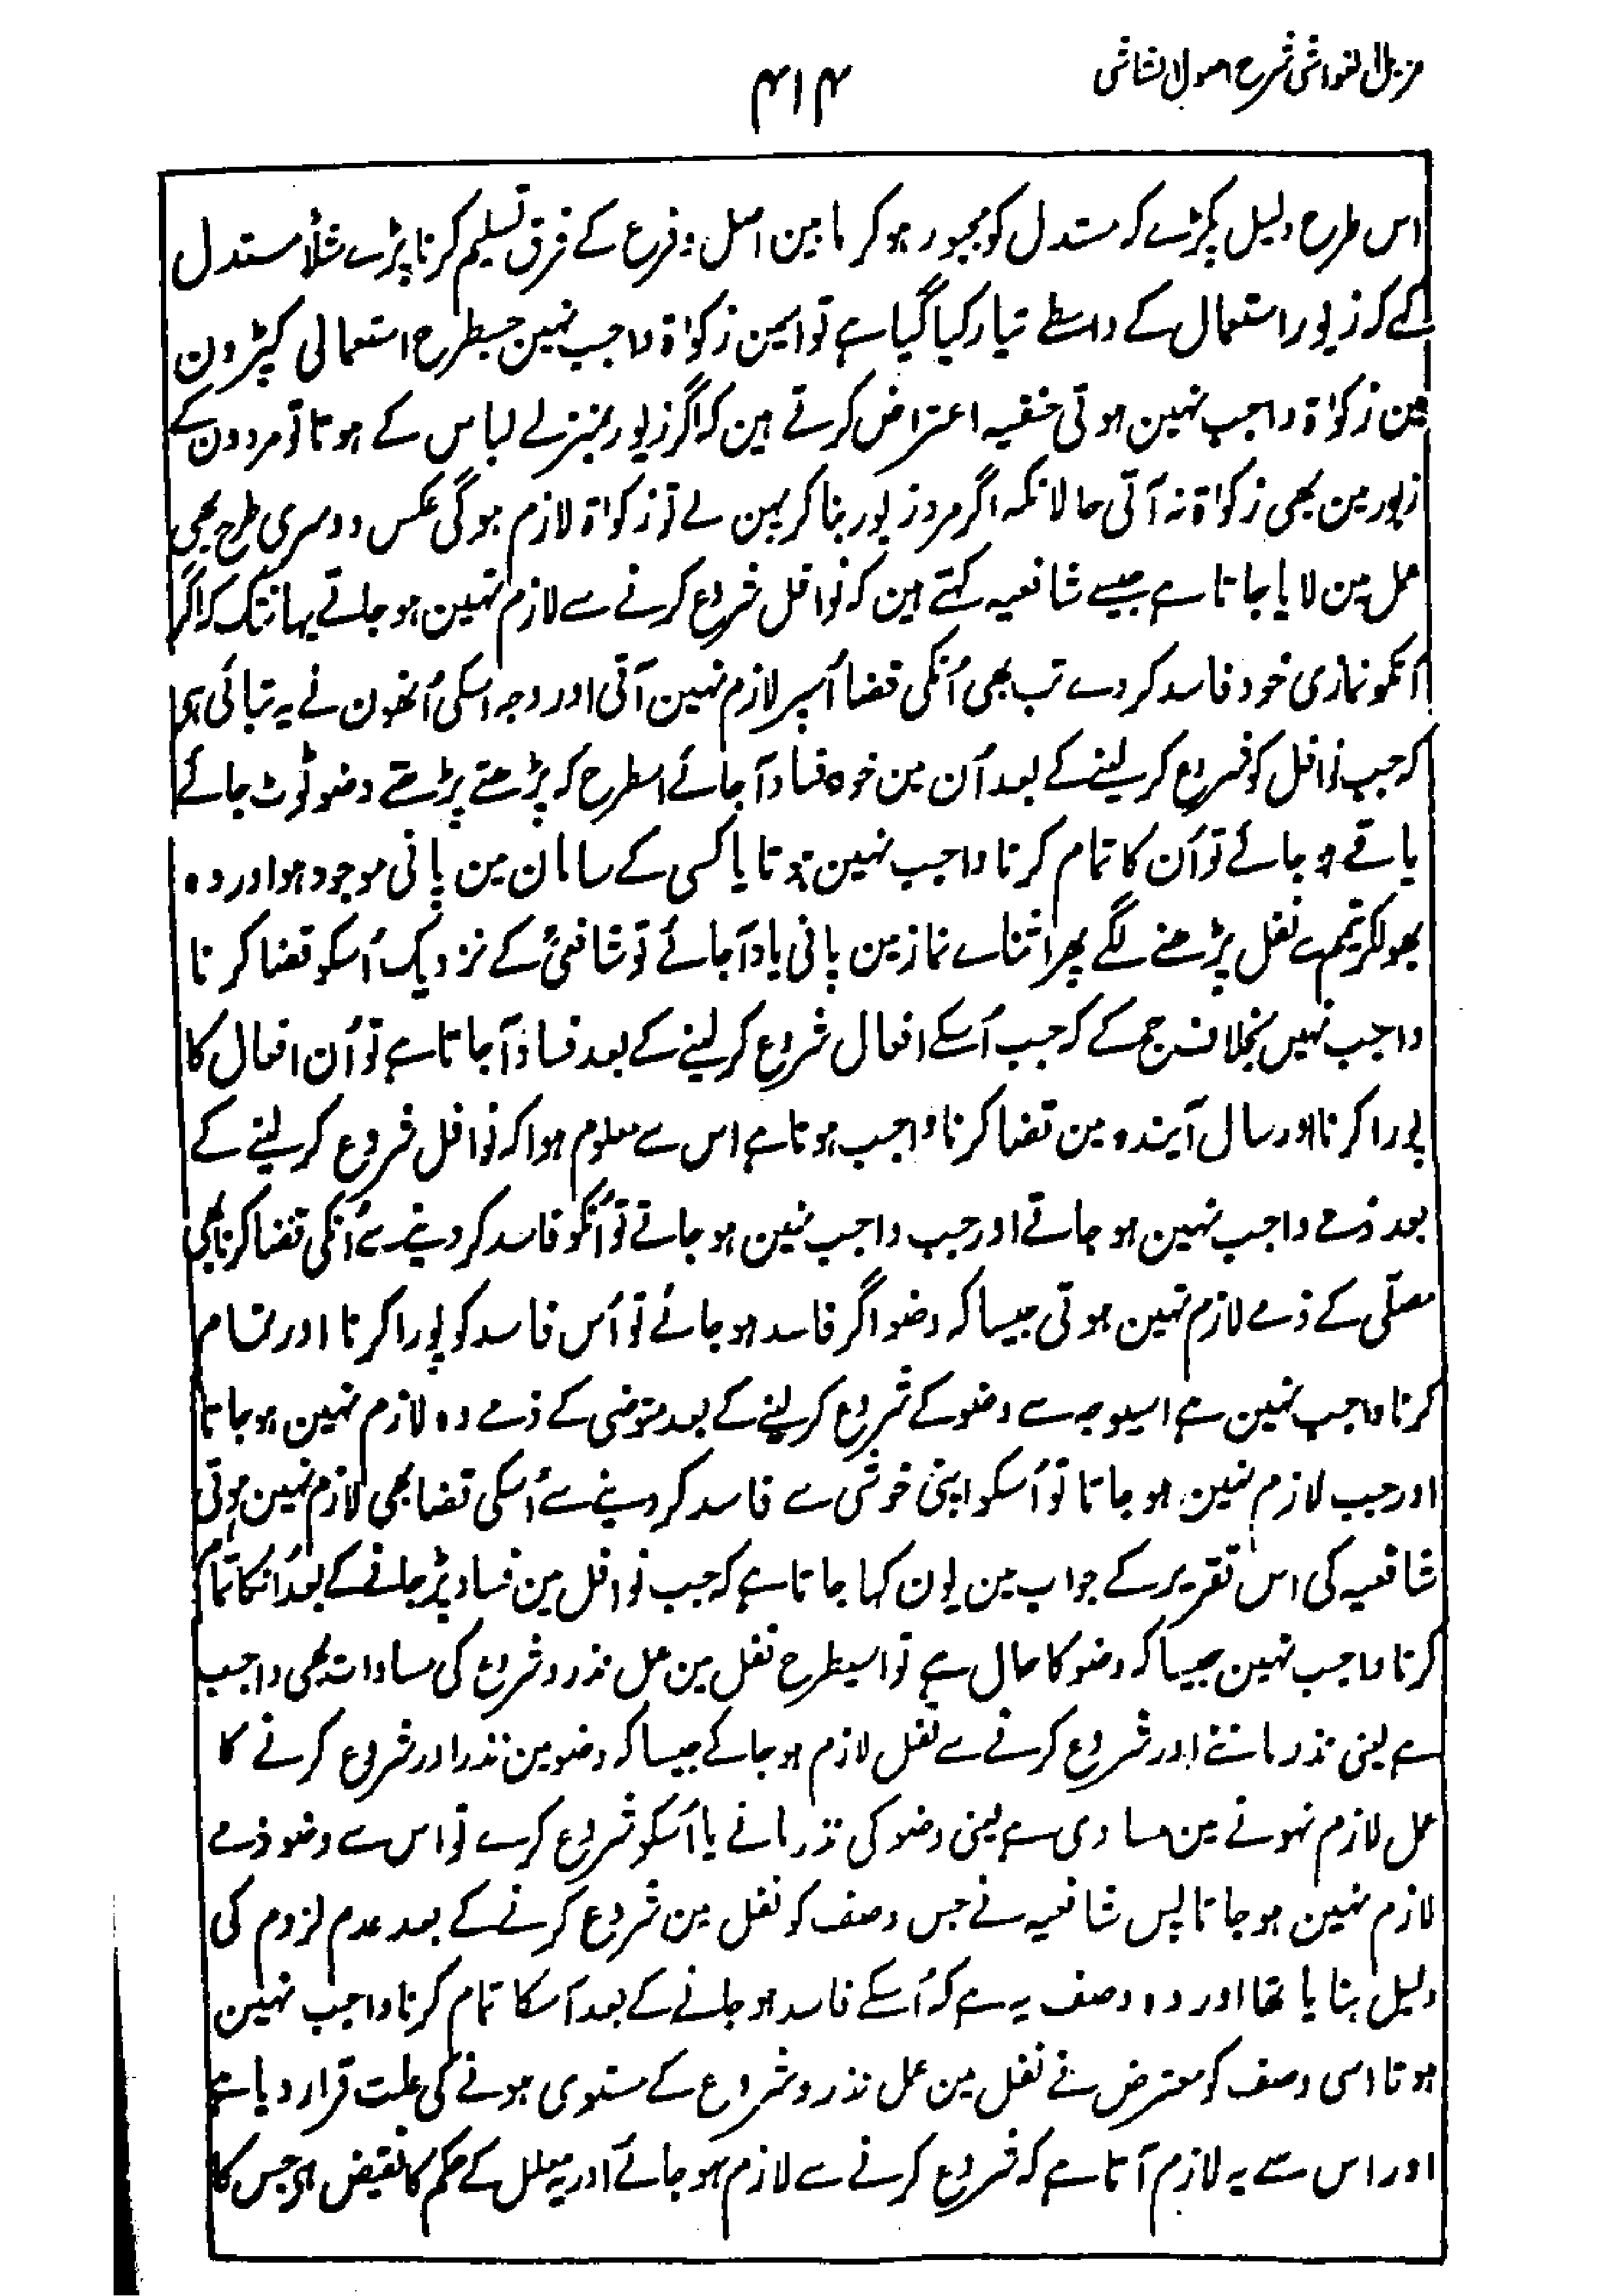 مزیل الغواشی شرح اصول الشاشی
۴۱۴
اس طرح دلیل پکڑے کہ مستدل کو مجبور ہو کر مابین اصل و فرع کے فرق تسلیم کرنا پڑے مثلاً مستدل
کہے کہ زیور استعمال کے واسطے تیار کیا گیا ہے تو اسمین زکوٰۃ واجب نہین جسطرح استعمالی کپڑون
مین زکوٰۃ واجب نہین ہوتی حنفیہ اعتراض کرتے ہین کہ اگر زیور بمنزلے لباس کے ہوتا تو مردون کے
زیور مین بھی زکوٰۃ نہ آتی حالانکہ اگر مرد زیور بنا کر پہن لے تو زکوٰۃ لازم ہوگی عکس دوسری طرح بھی
عمل مین لایا جاتا ہے جیسے شافعیہ کہتے ہین کہ نوافل شروع کرنے سے لازم نہین ہو جاتے یہانتک کہ اگر
انکو نمازی خود فاسد کر دے تب بھی اُنکی قضا اُسپر لازم نہین آتی اور وجہ اسکی اُنھون نے یہ بتائی ہی
کہ جب نوافل کو شروع کر لینے کے بعد اُن مین خود فساد آجائے اسطرح کہ پڑھتے پڑھتے وضو ٹوٹ جائے
یا قے ہو جائے تو اُن کا تمام کرنا واجب نہین ہوتا یا کسی کے سامان مین پانی موجود ہو اور وہ
بھولکر تیمم سے نفل پڑھنے لگے پھر اثناے نماز مین پانی یاد آجائے تو شافعیؒ کے نزدیک اُسکو قضا کرنا
واجب نہیں بخلاف حج کے کہ جب اُسکے افعال شروع کر لینے کے بعد فساد آجاتا ہے تو اُن افعال کا
پورا کرنا اور سال آیندہ مین قضا کرنا واجب ہوتا ہے اس سے معلوم ہوا کہ نوافل شروع کر لینے کے
بعد ذمے واجب نہین ہو جاتے اور جب واجب نہین ہو جاتے تو اُنکو فاسد کر دینے سے اُنکی قضا کرنا بھی
مصلّی کے ذمے لازم نہین ہوتی جیسا کہ وضو اگر فاسد ہو جائے تو اُس فاسد کو پورا کرنا اور تمام
کرنا واجب نہین ہے اسیوجہ سے وضو کے شروع کر لینے کے بعد متوضی کے ذمے وہ لازم نہین ہو جاتا
اور جب لازم نہین ہو جاتا تو اُسکو اپنی خوشی سے فاسد کر دینے سے اُسکی قضا بھی لازم نہین ہوتی
شافعیہ کی اس تقریر کے جواب مین یون کہا جاتا ہے کہ جب نوافل مین فساد پڑ جانے کے بعد اُنکا تمام
کرنا واجب نہین جیسا کہ وضو کا حال ہے تو اسیطرح نفل مین عمل نذر و شروع کی مساوات بھی واجب
ہے یعنی نذر ماننے اور شروع کرنے سے نفل لازم ہو جاے جیسا کہ وضو مین نذر اور شروع کرنے کا
عمل لازم نہونے مین مساوی ہے یعنی وضو کی نذر مانے یا اُسکو شروع کرے تو اس سے وضو ذمے
لازم نہین ہو جاتا پس شافعیہ نے جس وصف کو نفل مین شروع کرنے کے بعد عدم لزوم کی
دلیل بنایا تھا اور وہ وصف یہ ہے کہ اُسکے فاسد ہو جانے کے بعد اُسکا تمام کرنا واجب نہین
ہوتا اسی وصف کو معترض نے نفل مین عمل نذر و شروع کے مستوی ہونے کی علت قرار دیا ہے
اور اس سے یہ لازم آتا ہے کہ شروع کرنے سے لازم ہو جائے اور یہ معلل کے حکم کا نقیض ہی جس کا